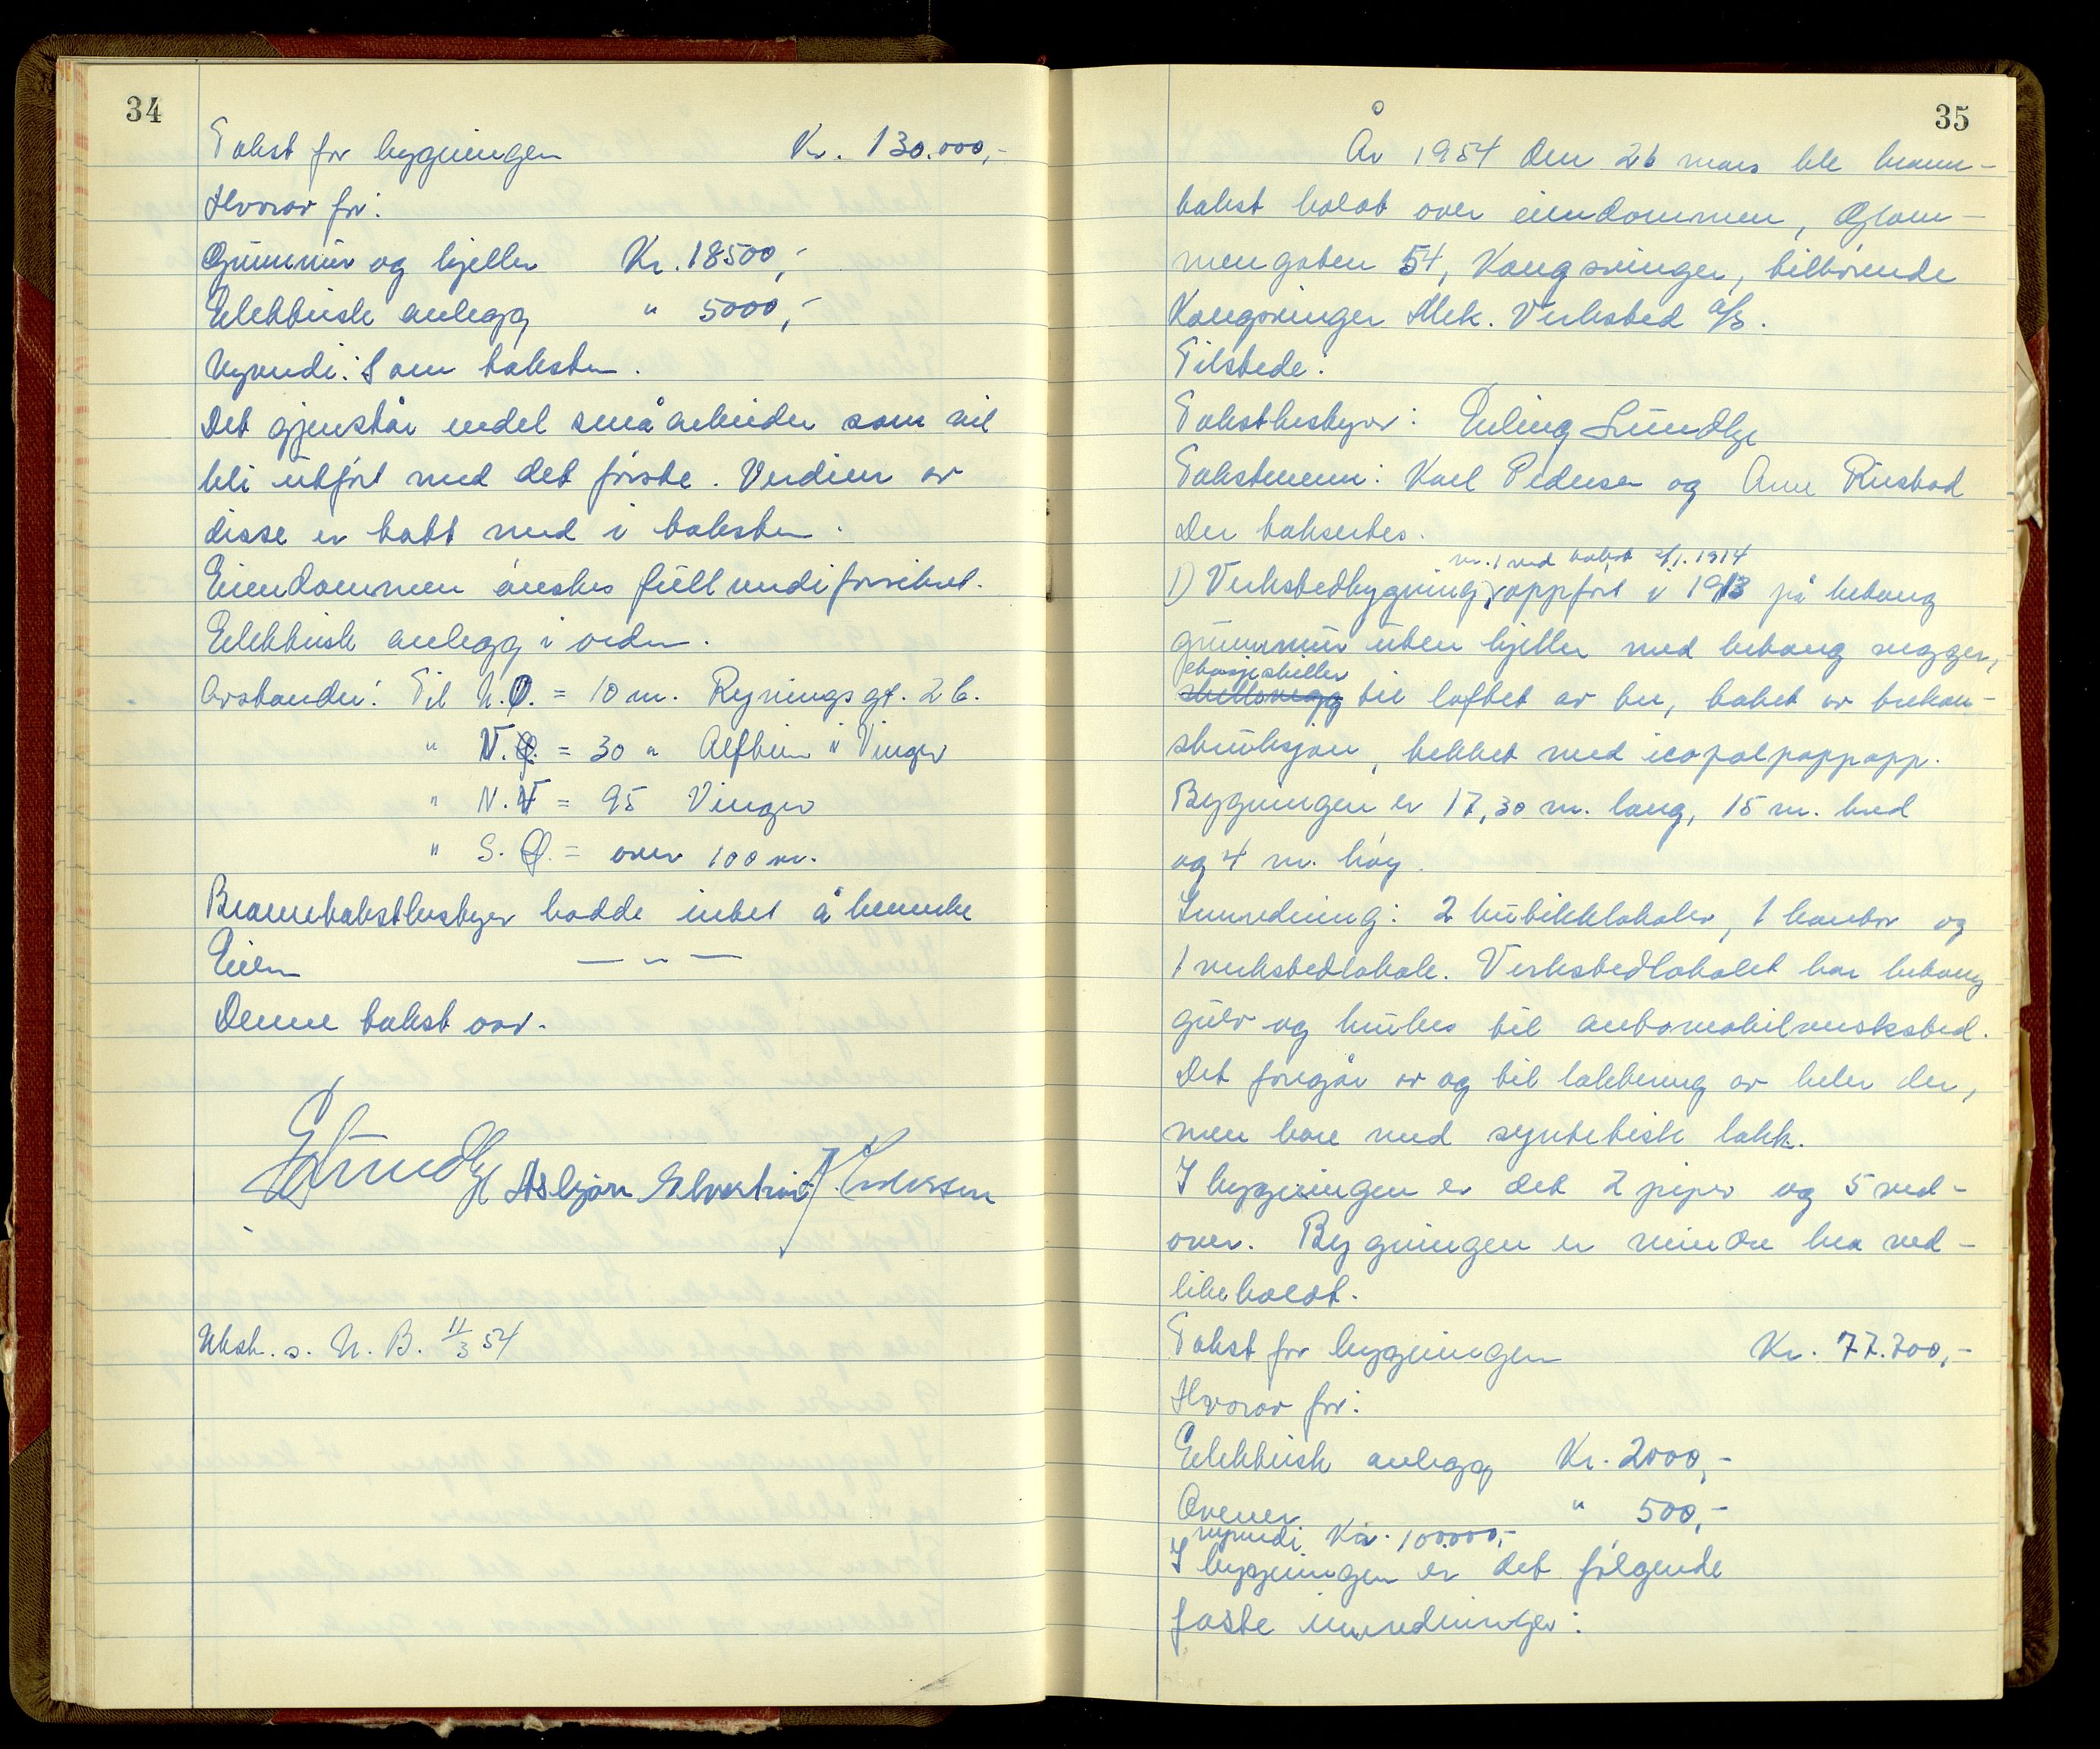 34
Takst for bygningen Kr. 130.000,-
Hvorav for:
Grunnmur og kjeller Kr. 18500,-
Elektrisk anlegg " 5000,-
Nyverdi: Som taksten.
Det gjenstår endel småarbeider som vil
bli utført med det første. Verdien av
disse er tatt med i taksten.
Eiendommen ønskes fullverdiforsikret.
Elektrisk anlegg i orden.
Avstander: Til N.Ø. = 10 m. Rynings gt. 2 b.
" V.Ø. = 30 " Alfheim " Vinger
" N.V = 95 Vinger
" S.Ø. = over 100 m.
Branntakstbestyrer hadde intet å bemerke
Eieren — " —
Denne takst avv.
E Lundby Asbjørn
Utsk. s. N. B. 11/3 54
35
År 1954 den 26 mars ble brann-
takst holdt over eiendommen, Glom-
mengaten 54, Kongsvinger, tilhørende
Kongsvinger Mek. Verksted a/s.
Tilstede:
Takstbestyrer: Erling Lundby
Takstmenn: Karl Pedersen og Arne Riisbad
Der takseertes.
nr. 1 ved takst 2/1. 1914
1) Verkstedbygning, oppført i 1913 på betong
grunnmur uten kjeller med betong vegger,
etasjeskiller
skillevegg til loftet av tre, taket av trekon-
struksjon, tekket med icopalpappapp.
Bygningen er 17,30 m. lang, 15 m. bred
og 4 m. høy.
Innredning: 2 butikklokaler, 1 kontor og
1 verkstedlokale. Verkstedlokalet har betong
gulv og brukes til automobilverksted.
Det foregår av og til lakkering av biler der,
men bare med syntetisk lakk.
I bygningen er det 2 piper og 5 ved-
ovner. Bygningen er mindre bra ved-
likeholdt.
Takst for bygningen Kr. 77.700,-
Hvorav for:
Elektrisk anlegg Kr. 2000,-
Ovener " 500,-
nyverdi Kr. 100.000,-
I bygningen er det følgende
faste innredninger: